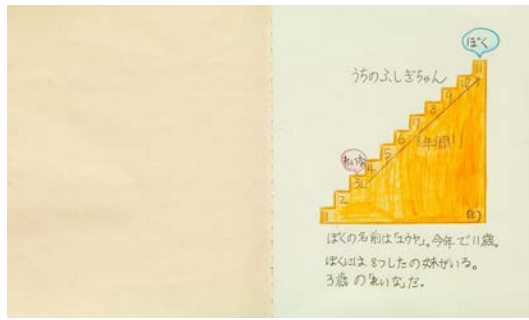 ぼく
うちのふしぎちゃん
れいな
8年間!!
1
2
3
4
5
6
7
8
9
10
11
(さい)
ぼくの名前は「ユウヤ」。今年で11歳。
ぼくには8つしたの妹がいる。
3歳の「れいな」だ。